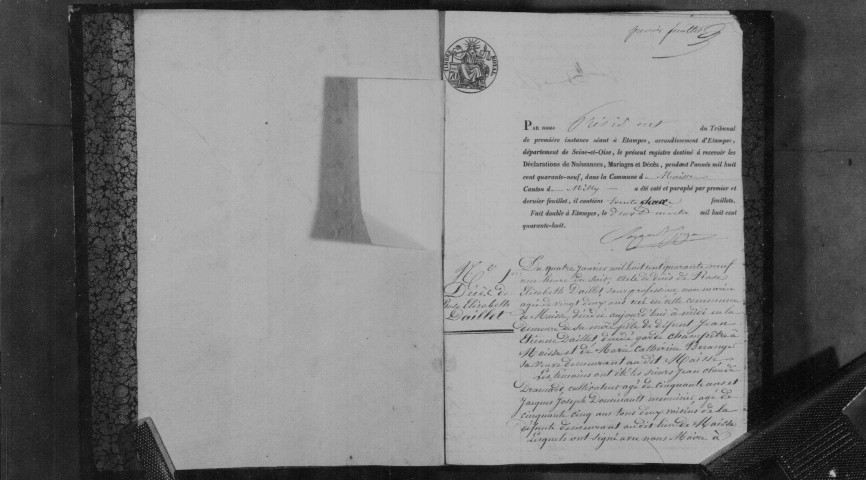 premier feuillet
TIMBRE ROYAL
PAR nous Président du Tribunal
de première instance séant à Etampes, arrondissement d'Etampes,
département de Seine-et-Oise, le présent registre destiné à recevoir les
Déclarations de Naissances, Mariages et Décès, pendant l'année mil huit
cent quarante-neuf, dans la Commune d Maisse
Canton d Milly a été coté et paraphé par premier et
dernier feuillet, il contient feuillets.
Fait double à Etampes, le mil huit cent
quarante-huit.
N° 1
Décès de
Rose Elisabeth
Daillet
Du quatre janvier mil huit cent quarante neuf
une heure du soir, acte de décès de Rose
Elisabeth Daillet sans profession, non mariée
agée de vingt deux ans née en cette commune
de Maisse, décédée aujourd'hui à midi en la
demeure de sa mère, fille de défunt Jean
Etienne Daillet décédé garde champêtre à
Maisse et de Marie Catherine Beranger
sa veuve demeurant au dit Maisse
Les témoins ont été les sieurs Jean Claude
cultivateur agé de cinquante ans et
Jacques Joseph menuisier, agé de
cinquante cinq ans tous deux voisins de la
défunte demeurant audit lieu de Maisse
Lesquels ont signé avec nous Maire à